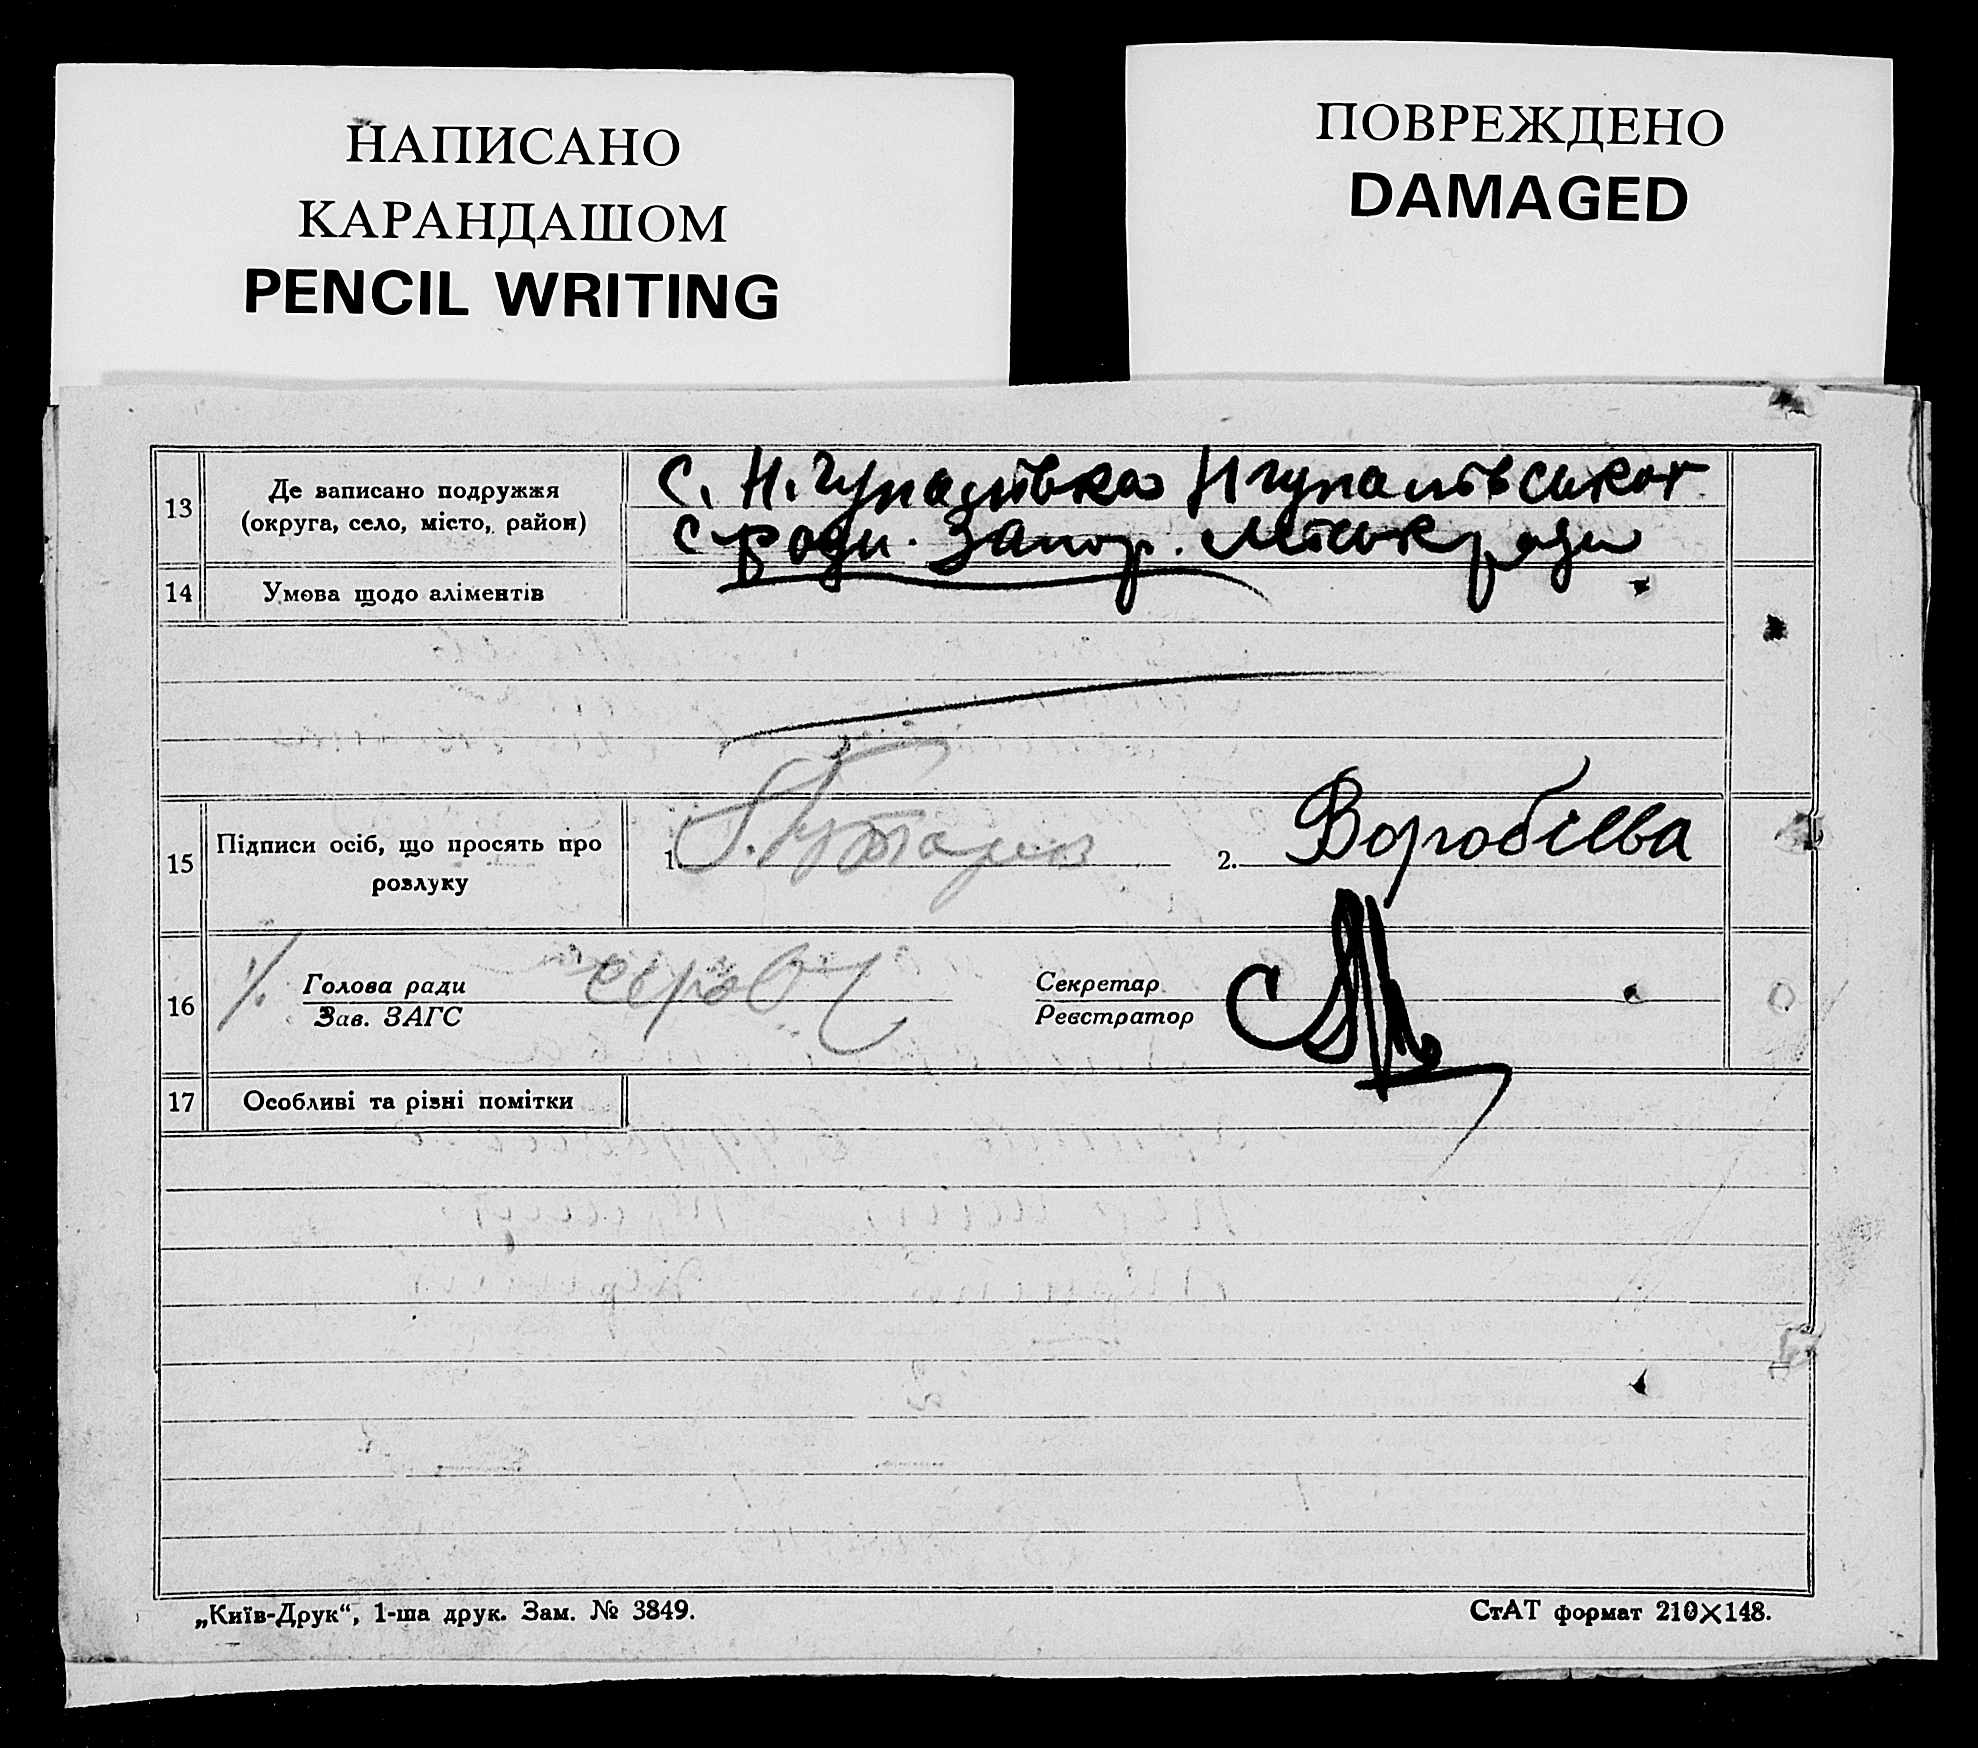 НАПИСАНО
КАРАНДАШОМ
PENCIL WRITING
ПОВРЕЖДЕНО
DAMAGED
13
Де записано подружжя
(округа, село, місто, район)
с. Н.
с ради. Запор. Міськради
14
Умова щодо аліментів
15
Підписи осіб, що просять про
розлуку
1.
2. Воробієва
16
Голова ради
Зав. ЗАГС
Секретар
Реєстратор
17
Особливі та різні помітки
„Київ-Друк“, 1-ша друк. Зам. № 3849.
СтАТ формат 210×148.